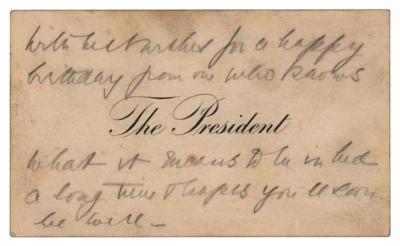 With best wishes for a happy
birthday from one who knows
The President
what it means to be in bed
a long time & hopes you'll soon
be well –